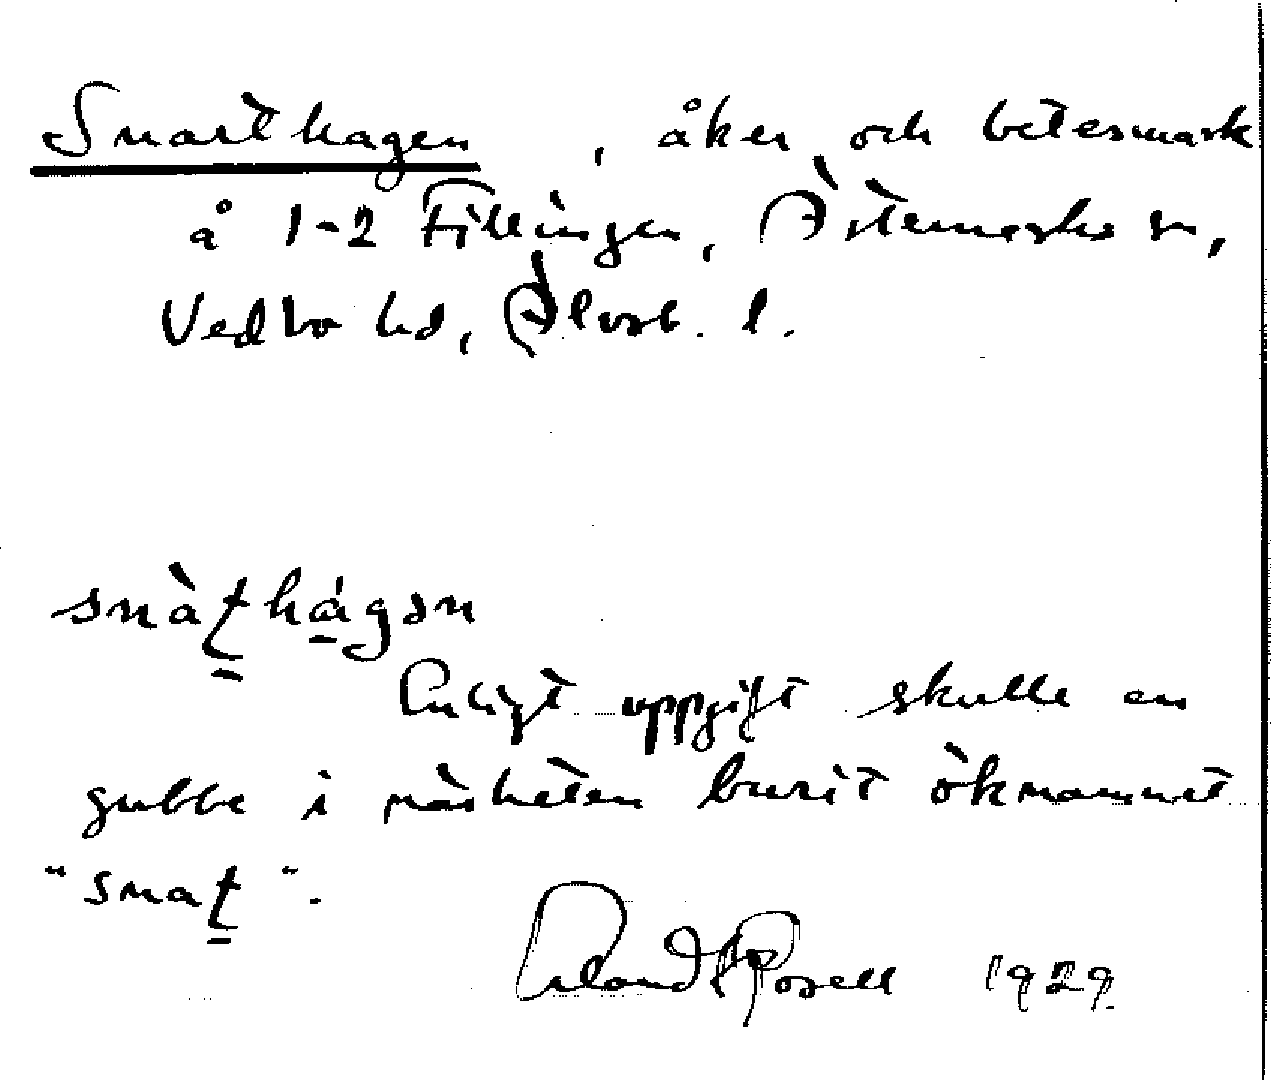 Snarthagen , åker och betesmark
å 1-2 Fillingen, Ärtemarks sn,
Vedbo hd, Älvsb. l.
snàt̠hágən
Enligt uppgift skulle en
gubbe i närheten burit öknamnet
"snat̠".
Erland Rosell 1929